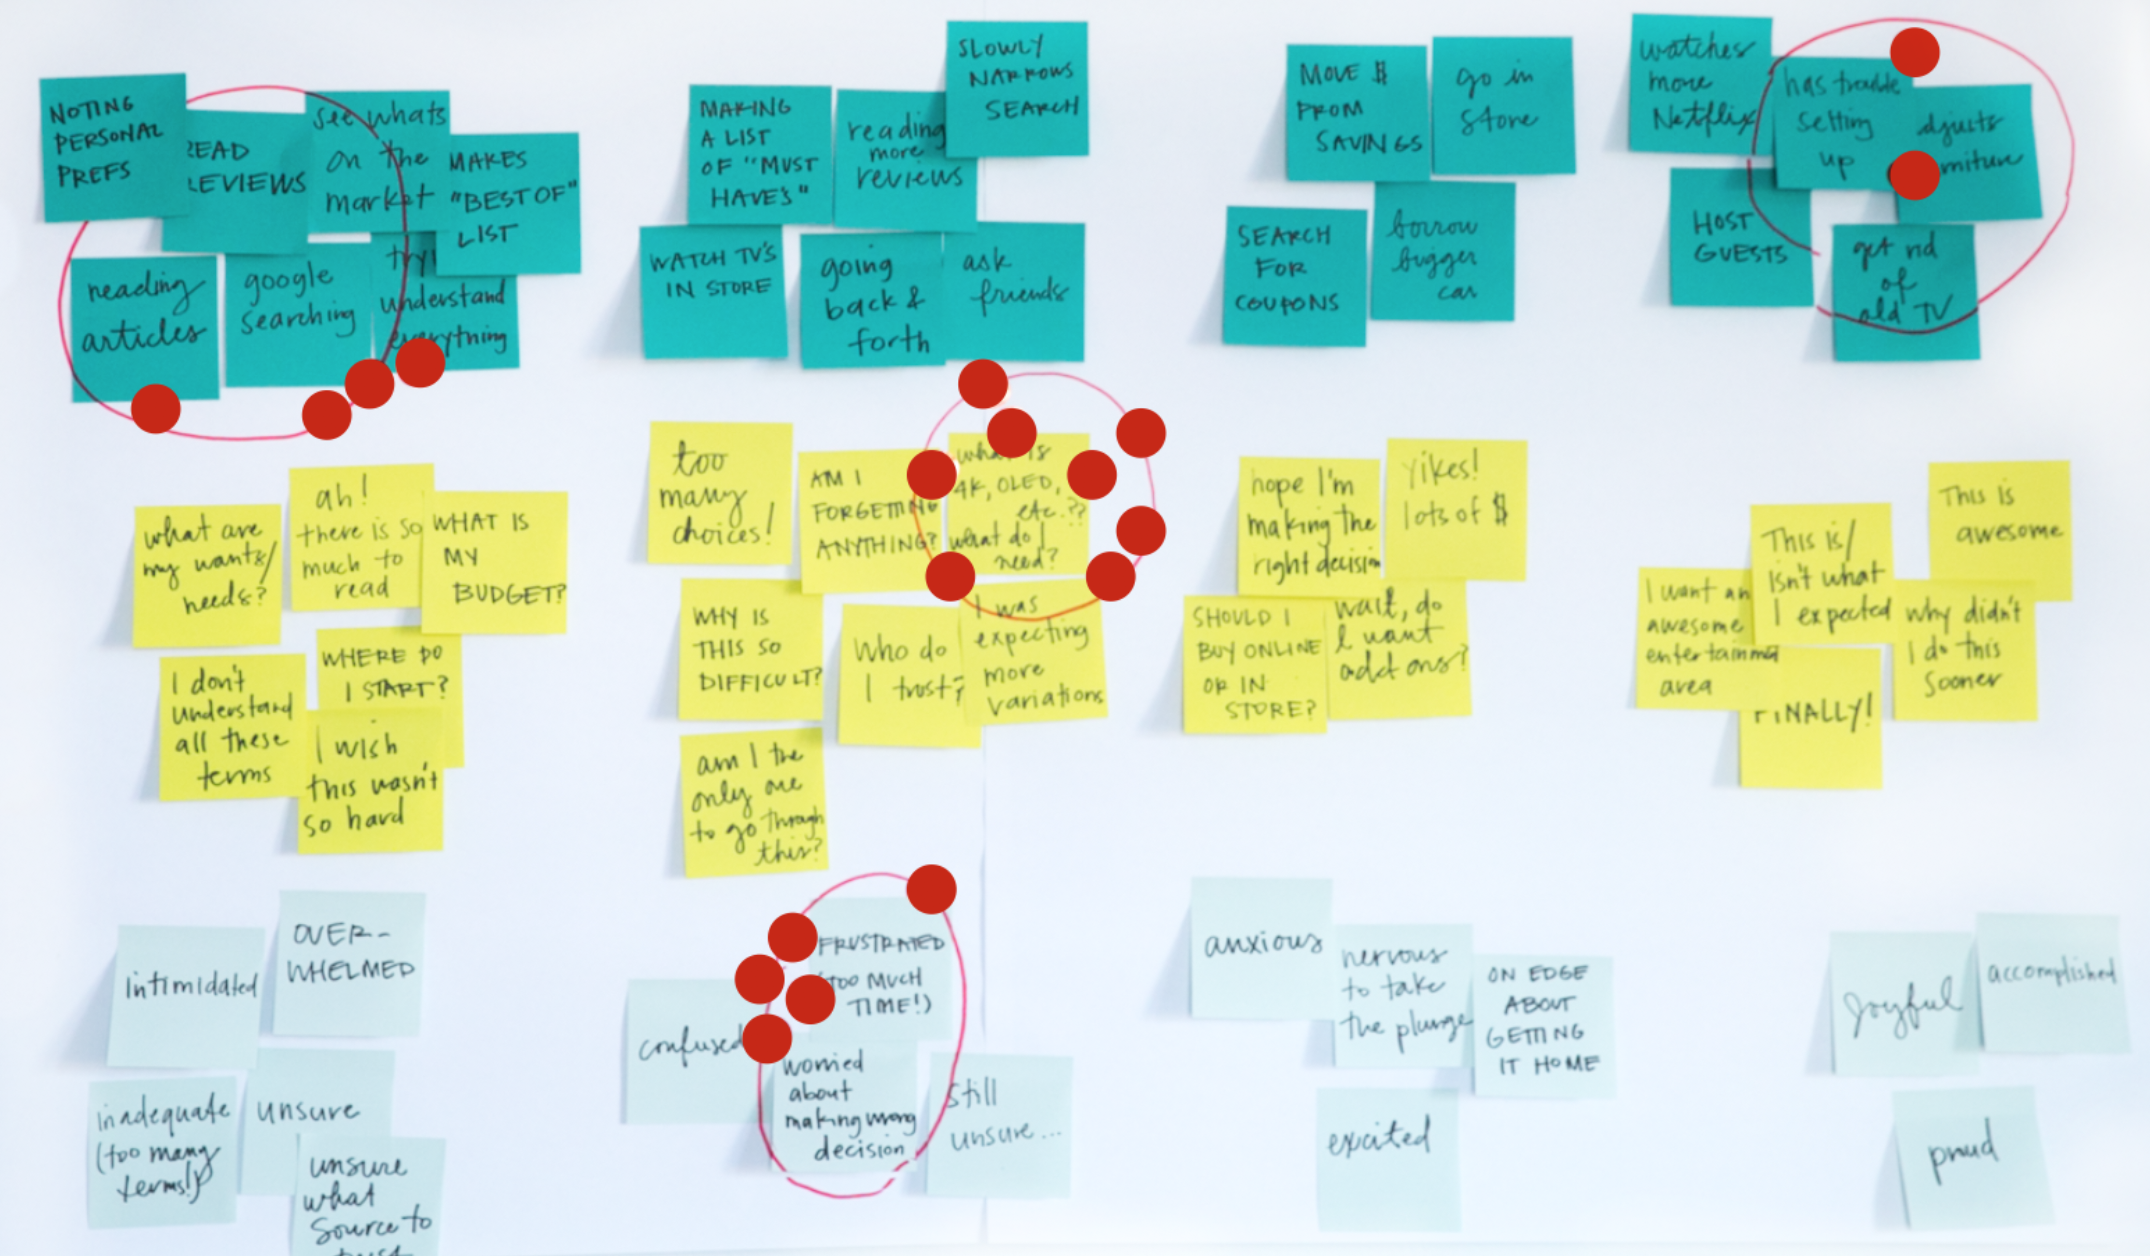 NOTING
PERSONAL
PREFS
READ
REVIEWS
see whats
on the
market
MAKES
"BEST OF"
LIST
reading
articles
google
searching
understand
everything
MAKING
A LIST
OF "MUST
HAVE'S"
reading
more
reviews
SLOWLY
NARROWS
SEARCH
WATCH TV'S
IN STORE
going
back &
forth
ask
friends
MOVE $
FROM
SAVINGS
go in
store
SEARCH
FOR
COUPONS
borrow
bigger
car
watches
more
Netflix
has trouble
setting
up
HOST
GUESTS
get rid
of
old TV
what are
my wants/
needs?
ah!
there is so
much to
read
WHAT IS
MY
BUDGET?
I don't
understand
all these
terms
WHERE DO
I START?
I wish
this wasn't
so hard
too
many
choices!
AM I
FORGETTING
ANYTHING?
what is
4K, OLED,
etc.??
what do I
need?
WHY IS
THIS SO
DIFFICULT?
Who do
I trust?
I was
expecting
more
variations
am I the
only one
to go through
this?
hope I'm
making the
right decision
yikes!
lots of $
SHOULD I
BUY ONLINE
OR IN
STORE?
wait, do
I want
add ons?
I want an
awesome
entertainment
area
This is/
isn't what
I expected
This is
awesome
why didn't
I do this
sooner
FINALLY!
intimidated
OVER-
WHELMED
inadequate
(too many
terms!)
unsure
unsure
what
source to
confused
FRUSTRATED
(TOO MUCH
TIME!)
worried
about
making wrong
decision
still
unsure...
anxious
nervous
to take
the plunge
ON EDGE
ABOUT
GETTING
IT HOME
excited
joyful
accomplished
proud